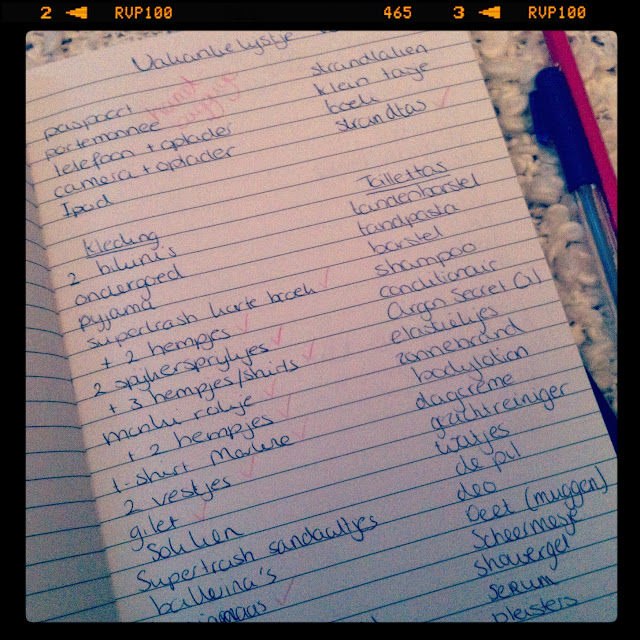 2 RVP100 465 3 RVP100
Vakantielijstje
paspoort
portemonnee
telefoon + oplader
camera + oplader
Ipod
hand
strandlaken
klein tasje
boek
strandtas ✓
Kleding
2 bikini's
ondergoed
pyjama
supertrash korte broek ✓
+ 2 hempjes ✓
2 spijkersprijtjes ✓
+ 3 hempjes/shirts ✓
manki rokje ✓
+ 2 hempjes ✓
t-shirt Marlene ✓
2 vestjes ✓
gilet ✓
Sokken
Supertrash sandaaltjes
ballerina's
✓
Toilettas
tandenborstel
tandpasta
borstel
shampoo
conditionair
Argan Secret Oil
elastiekjes
zonnebrand
bodylotion
dagcrème
gezichtreiniger
watjes
de pil
deo
Deet (muggen)
Scheermesje
showergel
serum
pleisters